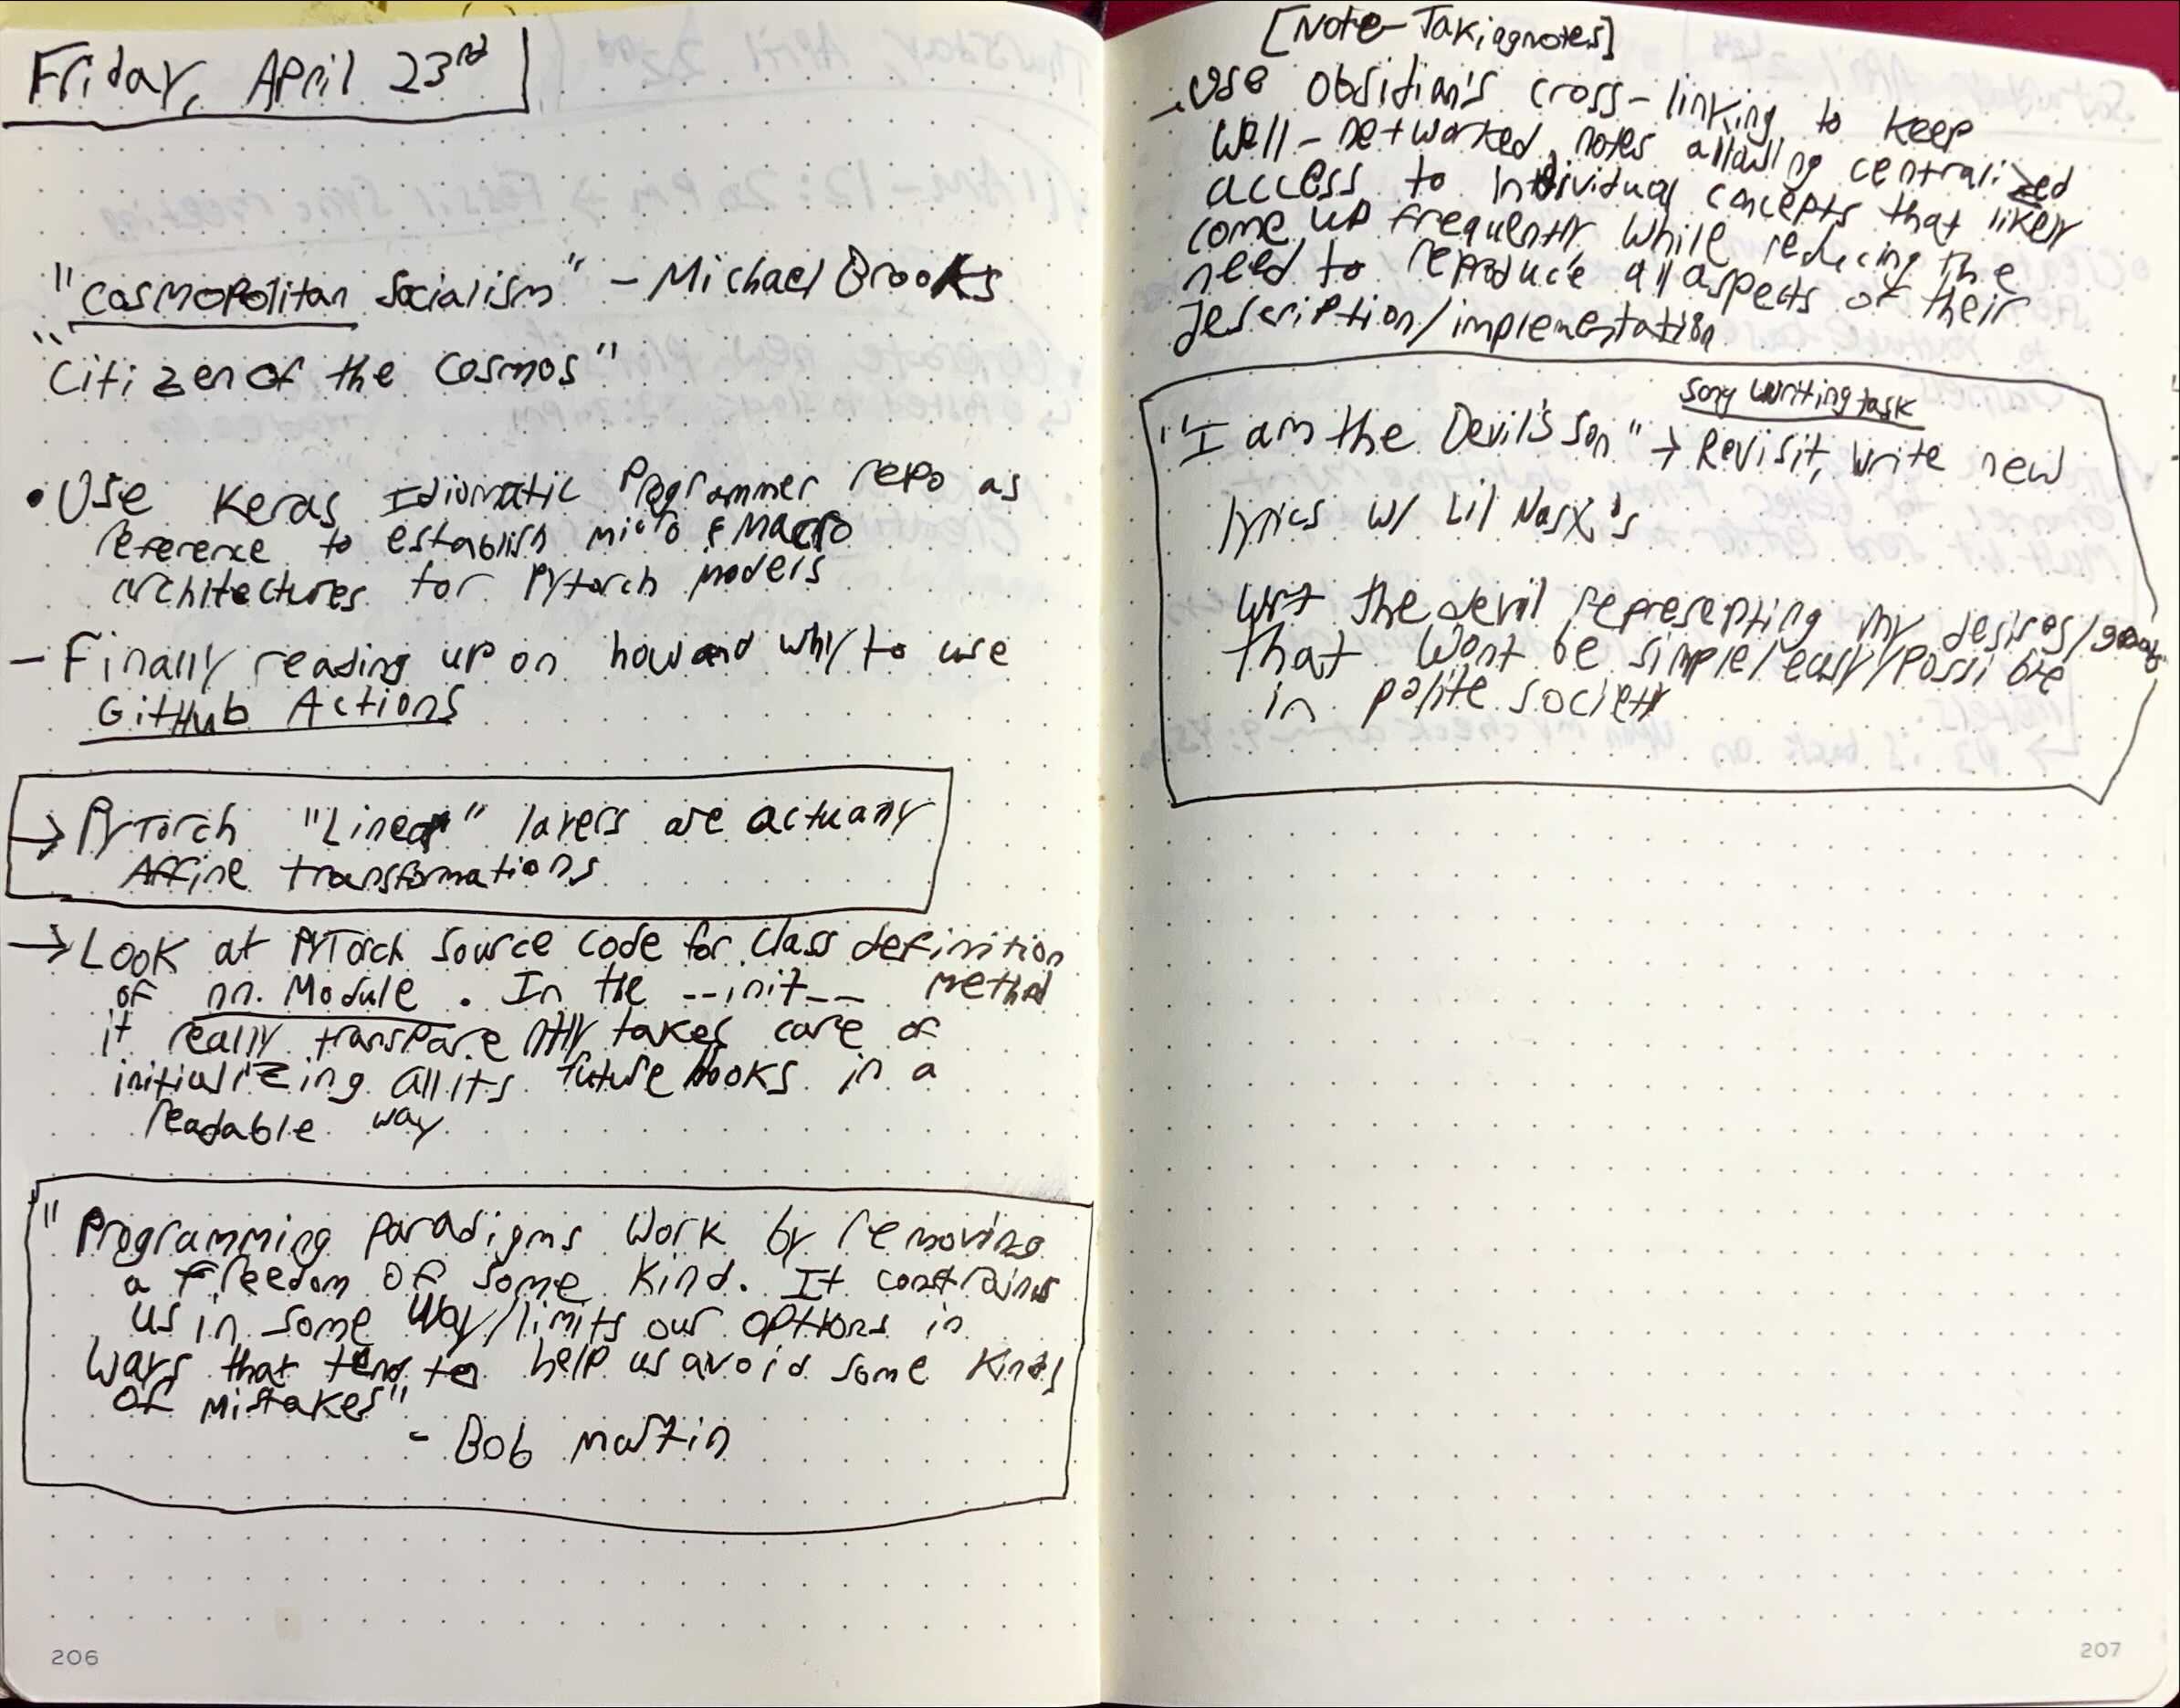 Friday, April 23rd
"Cosmopolitan Socialism" - Michael Brooks
"Citizen of the Cosmos"
• Use Keras Idiomatic Programmer repo as
reference to establish micro & Macro
architectures for Pytorch models
- Finally reading up on how and why to use
GitHub Actions
→ PyTorch "Linear" layers are actually
Affine transformations
→ Look at PyTorch source code for class definition
of nn.Module. In the __init__ method
it really transparently takes care of
initializing all its future hooks in a
readable way
"Programming paradigms work by removing
a freedom of some kind. It constrains
us in some way/limits our options in
ways that tend to help us avoid some kinds
of mistakes"
- Bob Martin
206
[Note-Takingnotes]
- Use Obsidian's cross-linking to keep
well-networked notes allowing centralized
access to individual concepts that likely
come up frequently while reducing the
need to reproduce all aspects of their
description/implementation
Song writing task
"I am the Devil's Son" → Revisit, write new
lyrics w/ Lil Nas X's
wrt the devil representing my desires/goals
that wont be simple/easy/possible
in polite society
207